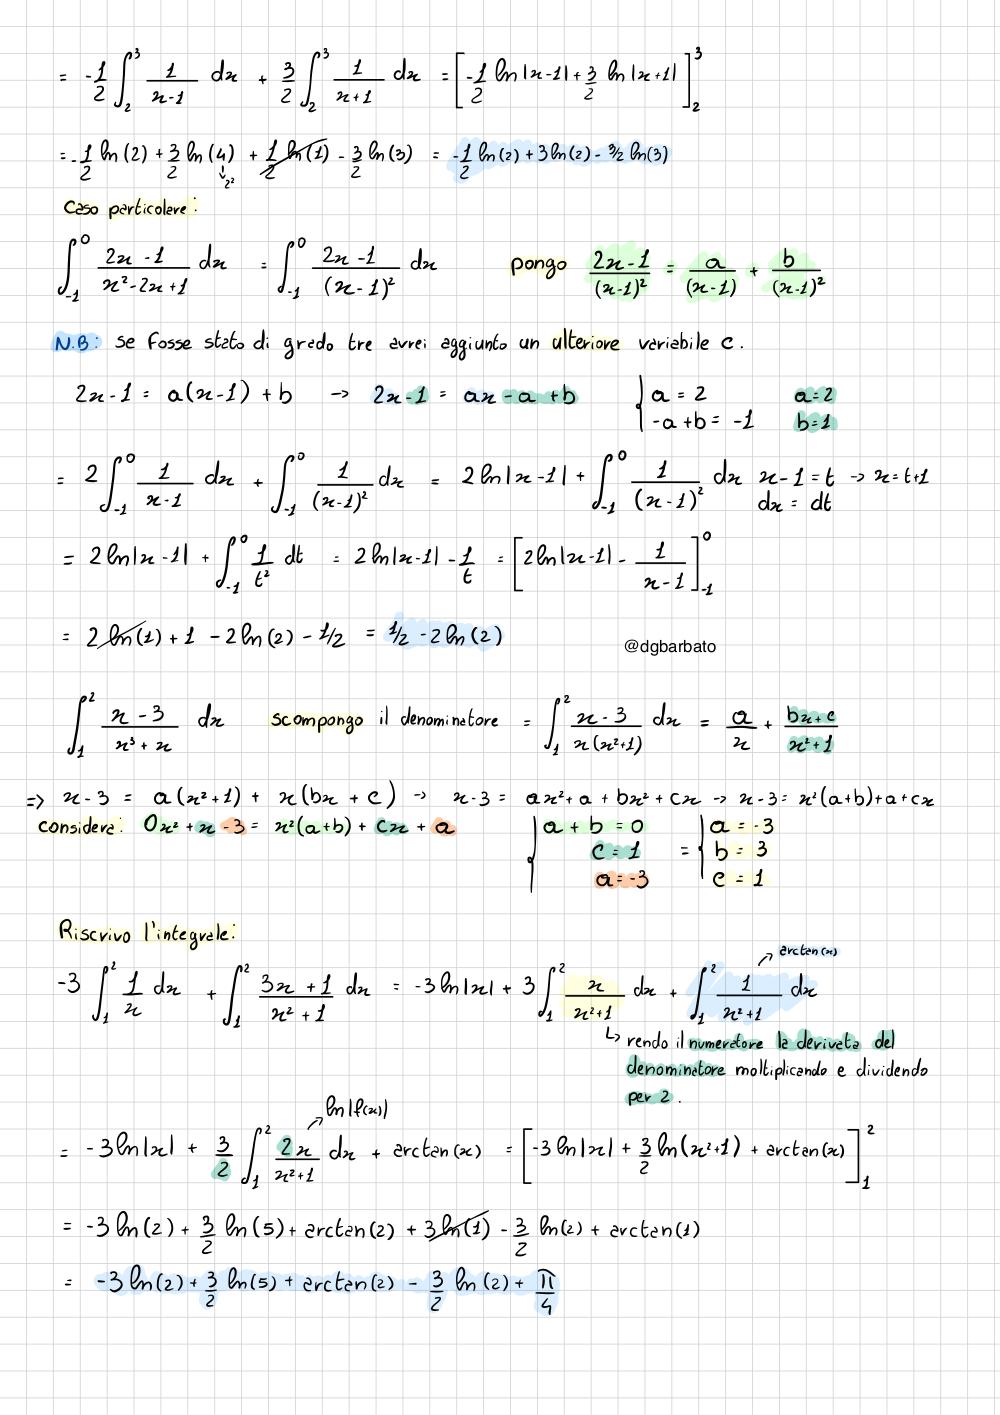 = -1/2 ∫₂³ 1/(x-1) dx + 3/2 ∫₂³ 1/(x+1) dx = [-1/2 ln|x-1| + 3/2 ln|x+1|]₂³
= -1/2 ln(2) + 3/2 ln(4) + 1/2 ln(1) - 3/2 ln(3) = -1/2 ln(2) + 3ln(2) - 3/2 ln(3)
↓ 2²
Caso particolare:
∫₋₁⁰ (2x-1)/(x²-2x+1) dx = ∫₋₁⁰ (2x-1)/(x-1)² dx pongo (2x-1)/(x-1)² = a/(x-1) + b/(x-1)²
N.B: se fosse stato di grado tre avrei aggiunto un ulteriore variabile c.
2x-1 = a(x-1) + b -> 2x-1 = ax - a + b { a = 2 a=2
-a + b = -1 b=1
= 2 ∫₋₁⁰ 1/(x-1) dx + ∫₋₁⁰ 1/(x-1)² dx = 2ln|x-1| + ∫₋₁⁰ 1/(x-1)² dx x-1 = t -> x = t+1
dx = dt
= 2ln|x-1| + ∫₋₁⁰ 1/t² dt = 2ln|x-1| - 1/t = [2ln|x-1| - 1/(x-1)]₋₁⁰
= 2ln(1) + 1 - 2ln(2) - 1/2 = 1/2 - 2ln(2)
@dgbarbato
∫₁² (x-3)/(x³+x) dx scompongo il denominatore = ∫₁² (x-3)/(x(x²+1)) dx = a/x + (bx+c)/(x²+1)
=> x-3 = a(x²+1) + x(bx+c) -> x-3 = ax² + a + bx² + cx -> x-3 = x²(a+b) + a + cx
considera: 0x² + x - 3 = x²(a+b) + cx + a { a + b = 0 = { a = -3
c = 1 b = 3
a = -3 c = 1
Riscrivo l'integrale:
arctan(x)
-3 ∫₁² 1/x dx + ∫₁² (3x+1)/(x²+1) dx = -3ln|x| + 3 ∫₁² x/(x²+1) dx + ∫₁² 1/(x²+1) dx
↳ rendo il numeratore la derivata del
denominatore moltiplicando e dividendo
per 2.
ln|f(x)|
= -3ln|x| + 3/2 ∫₁² 2x/(x²+1) dx + arctan(x) = [-3ln|x| + 3/2 ln(x²+1) + arctan(x)]₁²
= -3ln(2) + 3/2 ln(5) + arctan(2) + 3ln(1) - 3/2 ln(2) + arctan(1)
= -3ln(2) + 3/2 ln(5) + arctan(2) - 3/2 ln(2) + π/4